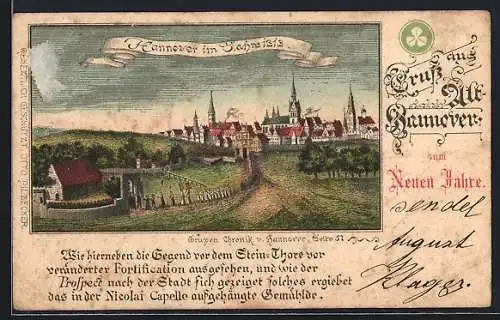 Hannover im Jahre 1312
Gruß aus
Alt-
Hannover
zum
Neuen Jahre.
sendet
August
Klages.
GESETZLICH GESCHÜTZT. OTTO PILZECKER.
Grupen Chronik v. Hannover, Seite 51
Wie hierneben die Gegend vor dem Stein-Thore vor
veränderter Fortification ausgesehen, und wie der
Prospect nach der Stadt sich gezeiget solches ergiebet
das in der Nicolai Capelle aufgehängte Gemählde.